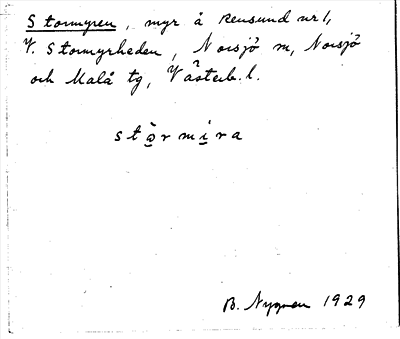 Stormyren, myr å Rensund nr 1,
V. Stormyrheden, Norsjö sn, Norsjö
och Malå tg, Västerb. l.
stǝrmira
B. Nygren 1929